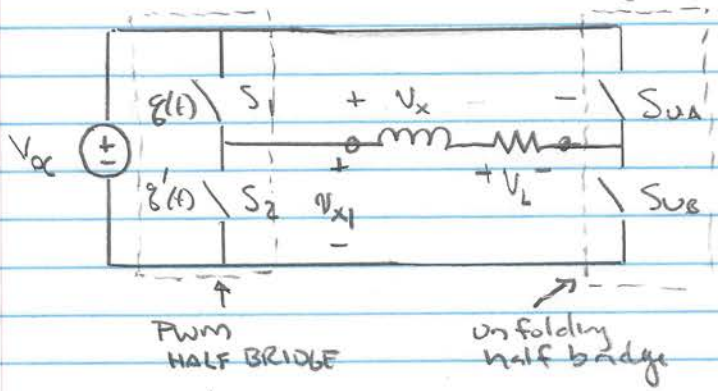 q(t) S₁ + Vₓ - S_UA
V_DC + -
+ + V_L -
q'(t) S₂ V_X1 S_UB
-
PWM
HALF BRIDGE
unfolding
half bridge